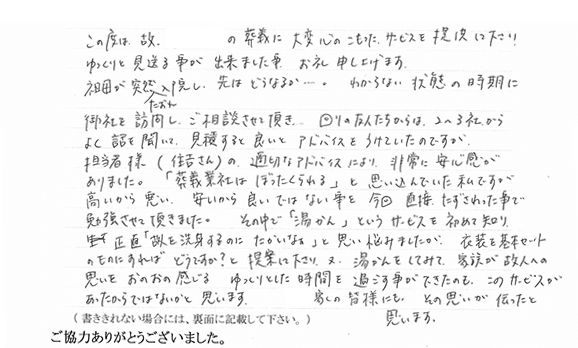 この度は、故 の葬義に大変心のこもったサービスを提供下さり
ゆっくりと見送る事が出来ました事、お礼申し上げます。
祖母が突然入院し、先はどうなるか…。わからない状態の時期に
たおれ
御社を訪問し、ご相談させて頂き、回りの友人たちからは、2〜3社から
よく話を聞いて、見積すると良いとアドバイスをうけていたのですが、
担当者様（住吉さん）の、適切なアドバイスにより、非常に安心感が
ありました。「葬義業社はぼったくられる」と思い込んでいた私ですが
高いから悪い、安いから良いではない事を今回直接たずさわった事で
勉強させて頂きました。その中で「湯かん」というサービスを初めて知り、
正直「故人を洗身するのにたかいなぁ」と思い悩みましたが、衣装を基本セット
のものにすればどうですか?と提案下さり、又、湯かんをしてみて、家族が故人への
思いをおのおの感じる、ゆっくりとした時間を過ごす事ができたのも、このサービスが
あったからではないかと思います。 の皆様にも、その思いが伝ったと
思います。
（書ききれない場合には、裏面に記載して下さい。）
ご協力ありがとうございました。